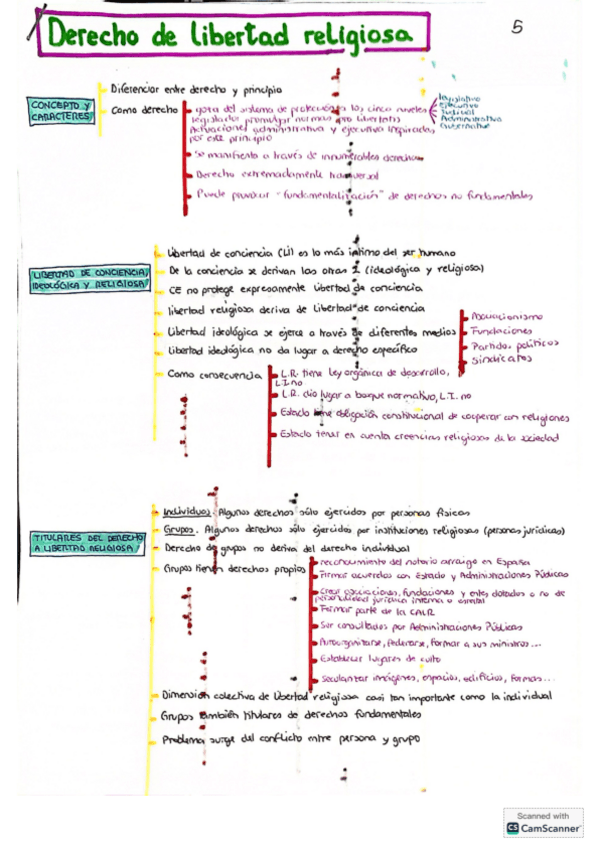 Derecho de libertad religiosa
5
CONCEPTO Y
CARACTERES
Diferenciar entre derecho y principio
Como derecho
goza del sistema de protección a los cinco niveles
legislador promulgar normas pro libertatis
Actuaciones administrativa y ejecutiva inspiradas
por este principio
legislativo
Ejecutivo
Judicial
Administrativa
Gubernativa
Se manifiesta a través de innumerables derechos
Derecho extremadamente transversal
Puede provocar "fundamentalización" de derechos no fundamentales
LIBERTAD DE CONCIENCIA,
IDEOLÓGICA Y RELIGIOSA
Libertad de conciencia (LI) es lo más íntimo del ser humano
De la conciencia se derivan las otras 2 (ideológica y religiosa)
CE no protege expresamente libertad de conciencia
libertad religiosa deriva de libertad de conciencia
Libertad ideológica se ejerce a través de diferentes medios
Asociacionismo
Fundaciones
Partidos políticos
Sindicatos
Libertad ideológica no da lugar a derecho específico
Como consecuencia
L.R. tiene Ley orgánica de desarrollo,
L.I no
L.R. dio lugar a bloque normativo, L.I. no
Estado tiene obligación constitucional de cooperar con religiones
Estado tener en cuenta creencias religiosas de la sociedad
TITULARES DEL DERECHO
A LIBERTAD RELIGIOSA
Individuos. Algunos derechos sólo ejercidos por personas físicas
Grupos. Algunos derechos sólo ejercidos por instituciones religiosas (personas jurídicas)
Derecho de grupos no deriva del derecho individual
Grupos tienen derechos propios
reconocimiento del notorio arraigo en España
Firmar acuerdos con Estado y Administraciones Públicas
Crear asociaciones, fundaciones y entes dotados o no de
personalidad jurídica interna o estatal
Formar parte de la CALR
Ser consultados por Administraciones Públicas
Autoorganizarse, federarse, formar a sus ministros...
Establecer lugares de culto
Salvaguardar imágenes, espacios, edificios, formas...
Dimensión colectiva de libertad religiosa casi tan importante como la individual
Grupos también titulares de derechos fundamentales
Problema surge del conflicto entre persona y grupo
Scanned with
CS CamScanner